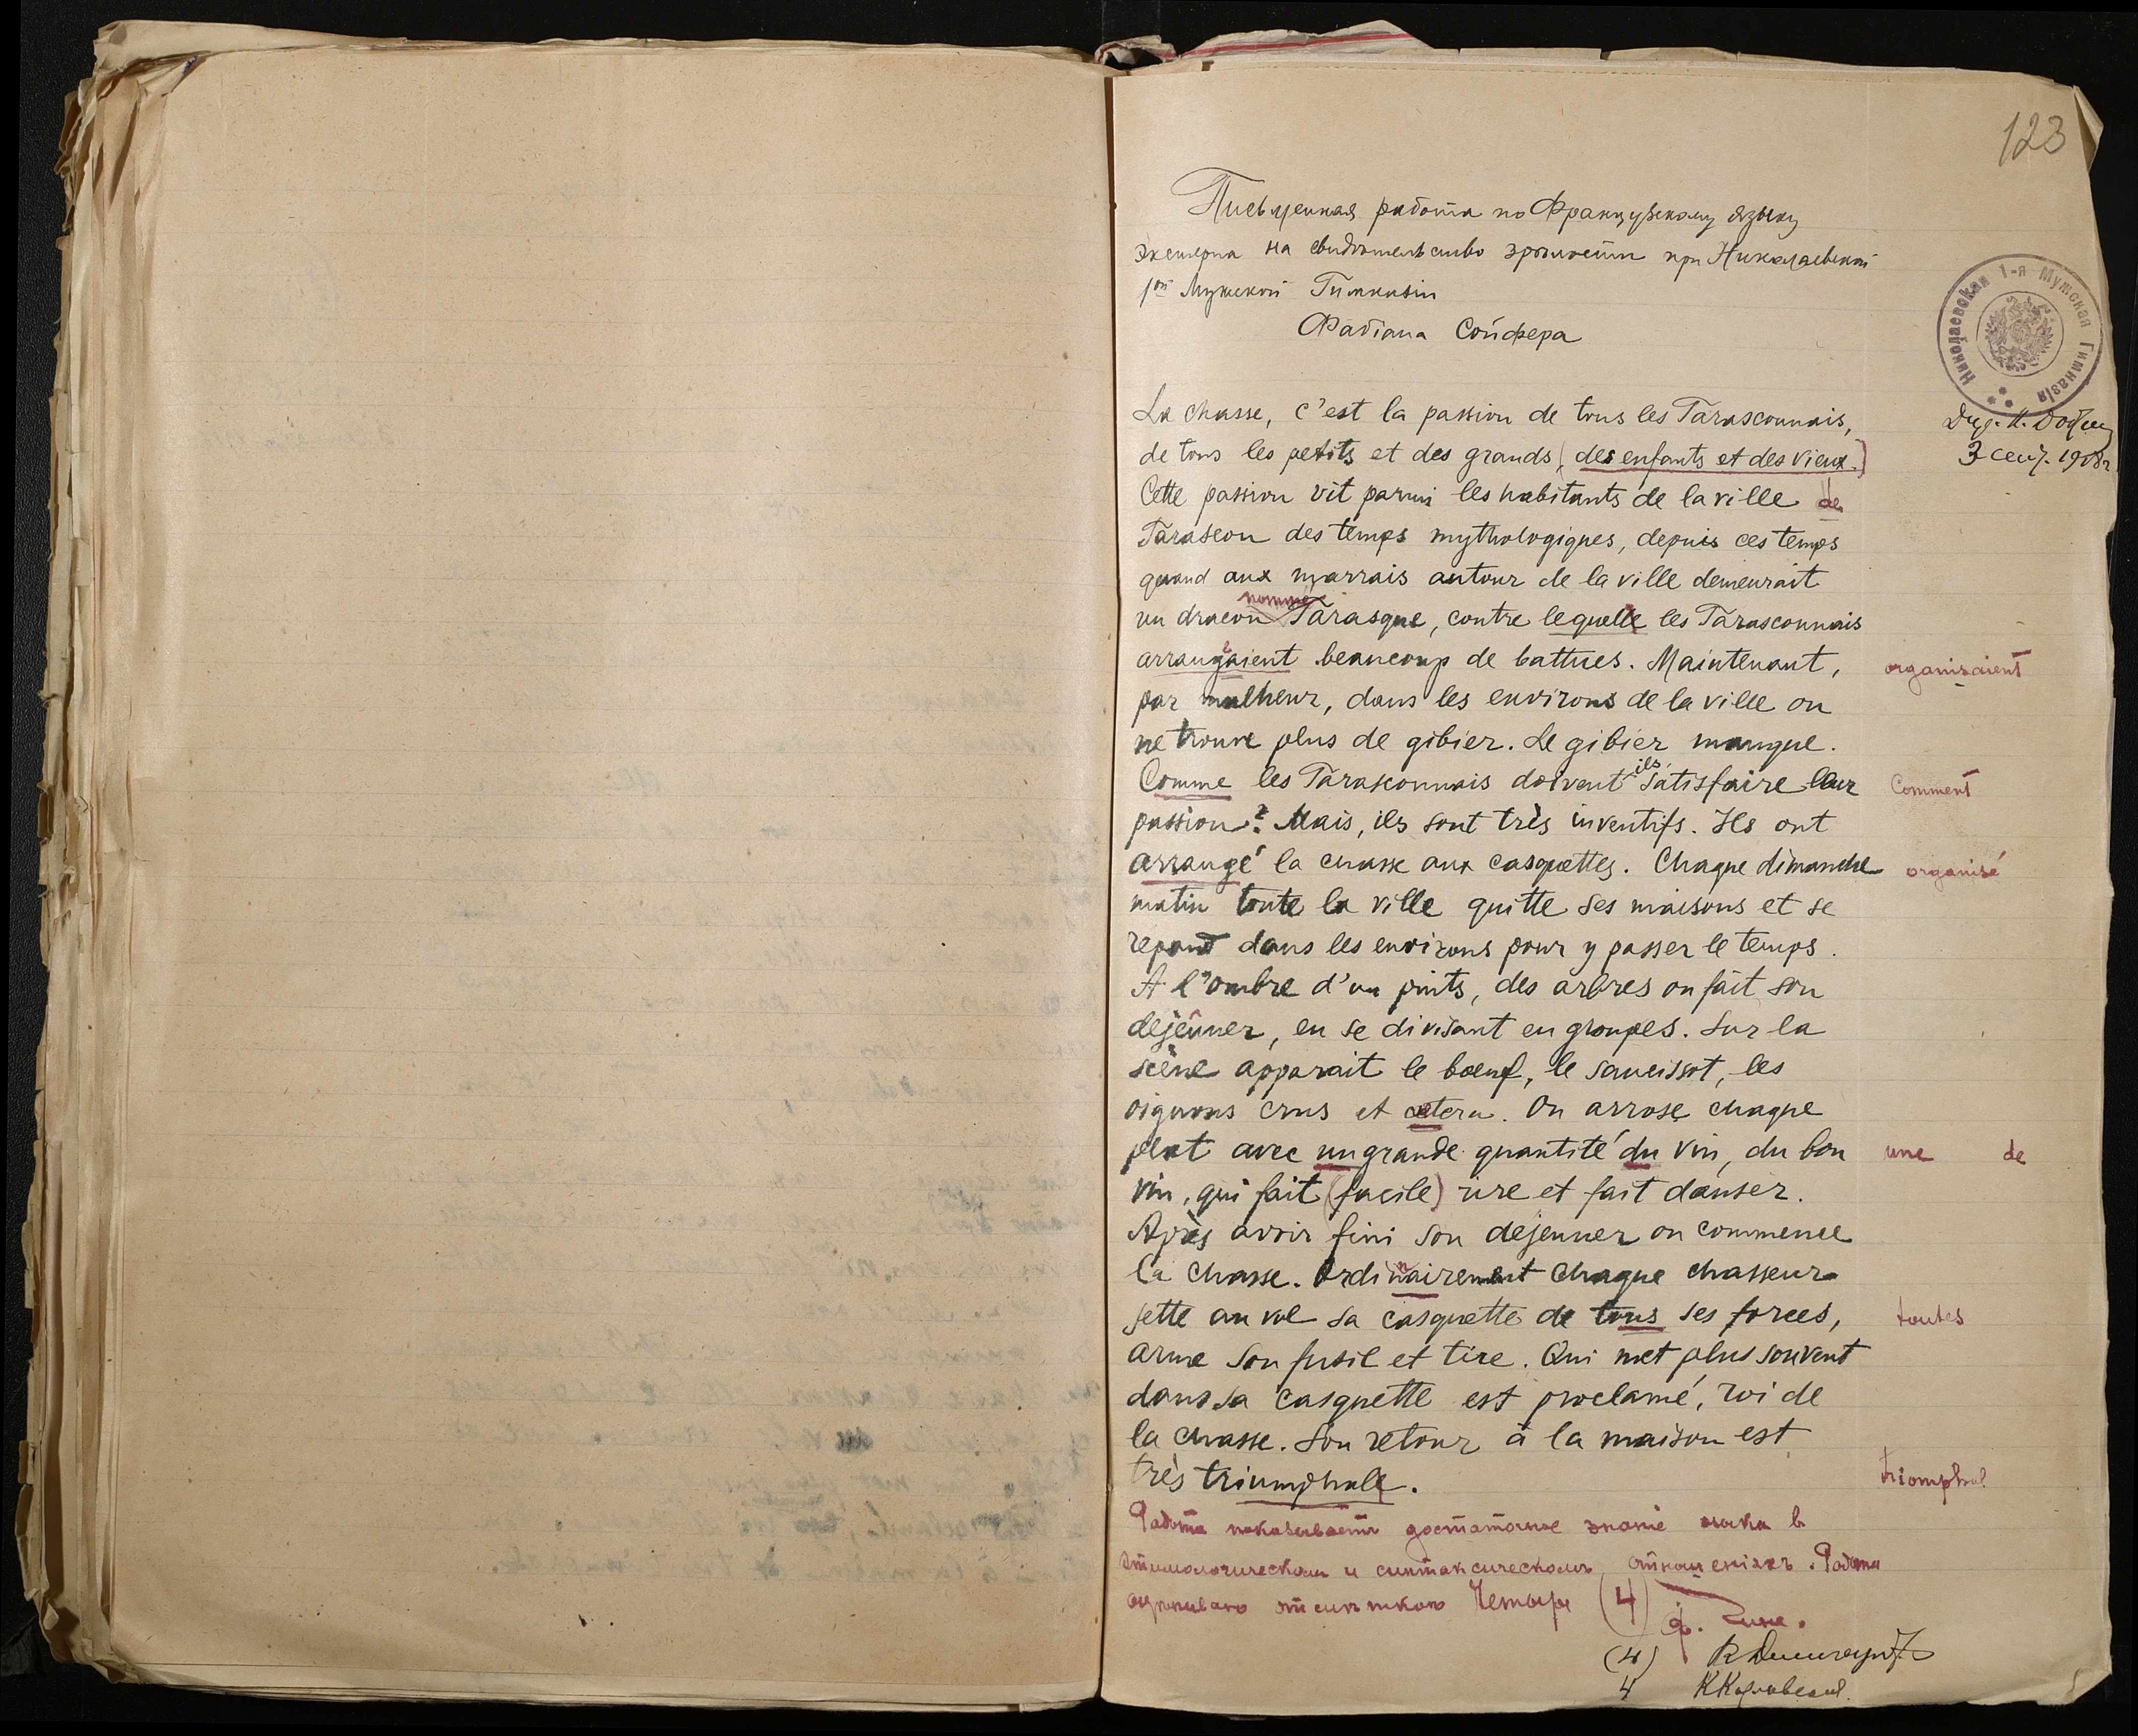 123
Письменная работа по Французскому языку
экстерна на свидѣтельство зрѣлости при Николаевской
1ой Мужской Гимназіи
Фабіана Сойфера
Николаевская 1-я Мужская Гимназія
3 сент. 1908 г.
La chasse, c'est la passion de tous les Tarasconnais,
de tous les petits et des grands (des enfants et des vieux.)
Cette passion vit parmi les habitants de la ville de
Tarascon des temps mythologiques, depuis ces temps
quand aux marrais autour de la ville demeurait
nommé
un dracon Tarasque, contre lequelle les Tarasconnais
arrangeaient beaucoup de battues. Maintenant, organisaient
par malheur, dans les environs de la ville on
ne trouve plus de gibier. Le gibier manque.
ils
Comme les Tarasconnais doivent satisfaire leur Comment
passion? Mais, ils sont très inventifs. Ils ont
arrangé la chasse aux casquettes. Chaque dimanche organisé
matin toute la ville quitte ses maisons et se
repand dans les environs pour y passer le temps.
A l'ombre d'un puits, des arbres on fait son
dejeûner, en se divisant en groupes. Sur la
scène apparait le boeuf, le saucissot, les
oignons crus et cetera. On arrose chaque
plat avec un grande quantité du vin, du bon une de
vin, qui fait (facile) rire et fait danser.
Après avoir fini son dejeuner on commence
la chasse. Ordinairement chaque chasseur
jette au vol sa casquette de tous ses forces, toutes
arme son fusil et tire. Qui met plus souvent
dans sa casquette est proclamé, roi de
la chasse. Son retour à la maison est
très triumphale. triomphal
Работа показываетъ достаточное знаніе языка въ
этимологическомъ и синтаксическомъ отношеніяхъ. Работа
оцѣниваю отмѣткою Четыре (4)
(4)
4